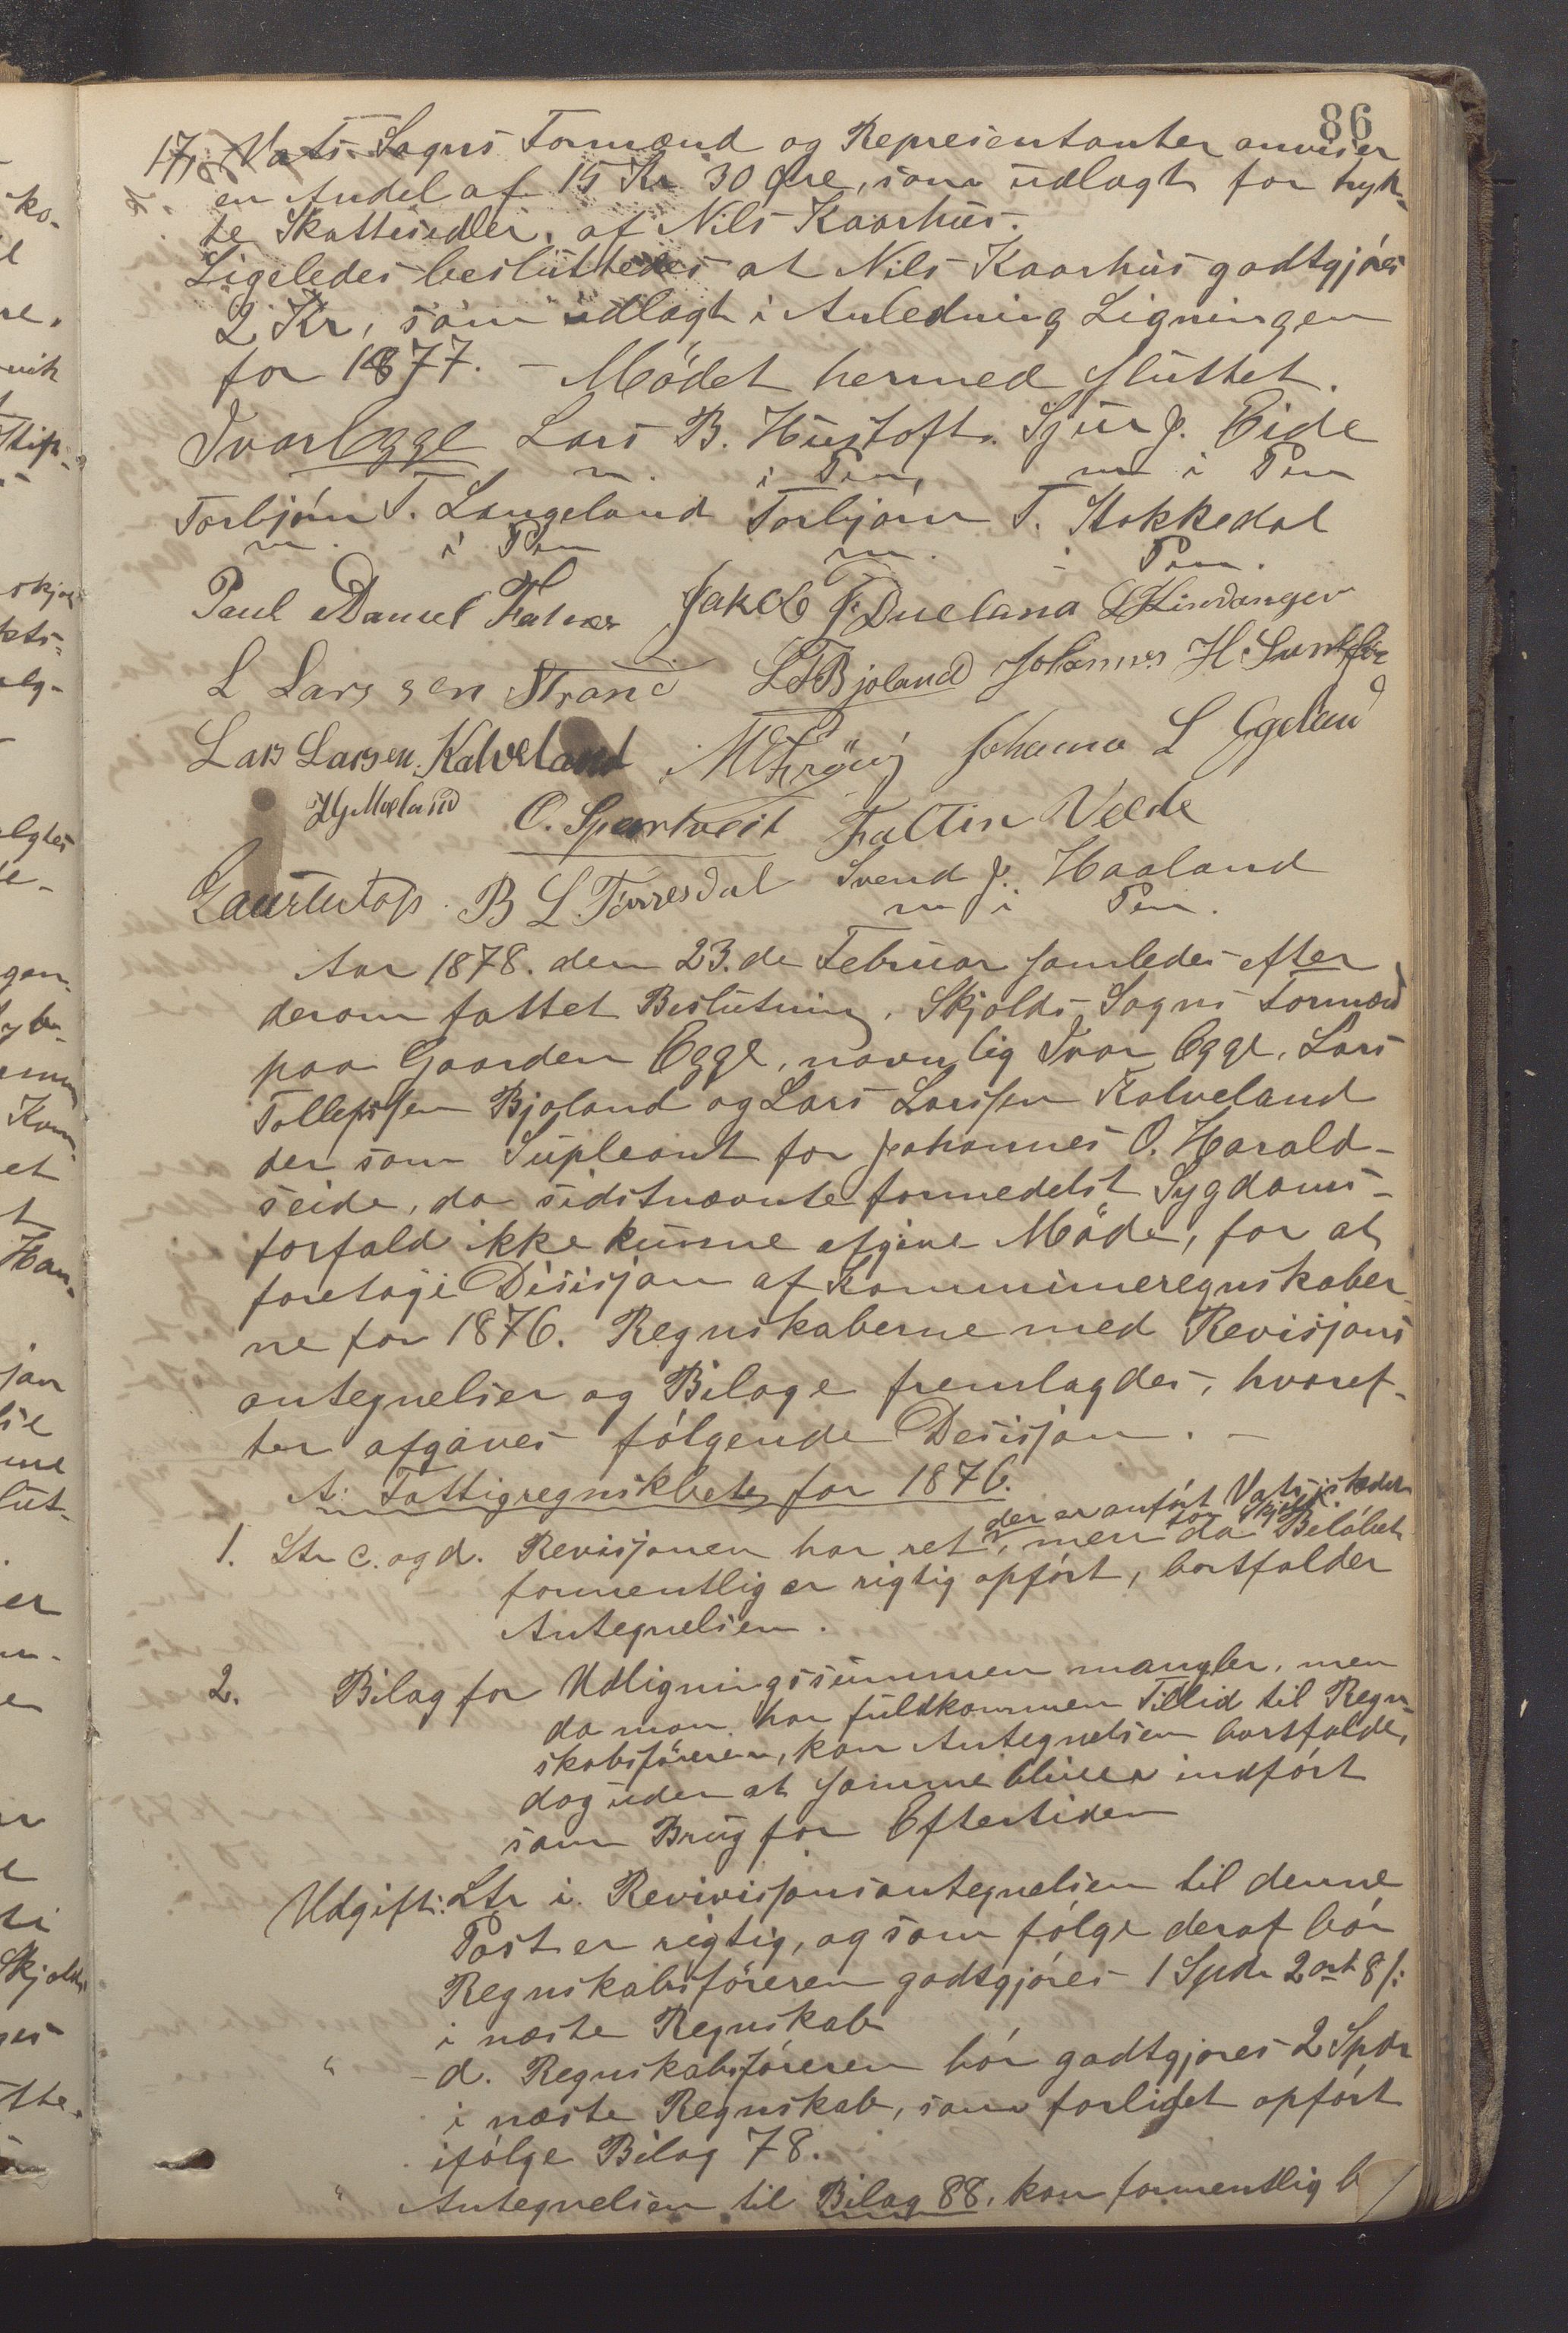 86
17, Vats Sogns Formænd og Representanter anviser
en Andel af 15 Kr 30 Øre, som udlagt for tryk-
te Skattesedler, af Nils Kaarhus.
Ligeledes besluttedes at Nils Kaarhus godtgjóres
2 Kr, som udlagt i Anledning Ligningen
for 1877. – Mödet hermed sluttet.
Ivar Egge Lars B. Hustoft. Sjur J. Eide
m. i Pen, m i Pen
Torbjórn T. Langeland Torbjórn T. Stokkedal
m. i Pen m. i Pen.
Paul Daniel Jakob J. Dueland
L Larssen Strand L T Bjoland Johannes H
Lars Larsen Kalveland L Egeland
O. Spartveit Faltin Velde
B L Torresdal Svend J. Haaland
m i Pen.
Aar 1878. den 23.de Februar samledes efter
derom fattet Beslutning, Skjolds Sogns Formænd
paa Gaarden Egge, navnlig Ivar Egge, Lars
Tollefssen Bjoland og Lars Larssen Kalveland
der som Supleant for Johannes O. Harald-
seide, da sidstnævnte formedelst Sygdoms-
forfald ikke kunne afgive Möde, for at
foretage Disisjon af Kommuneregnskaber-
ne for 1876. Regnskaberne med Revisjons
antegnelser og Bilage fremlagdes, hvoref-
ter afgaves fólgende Desisjon. –
A. Fattigregnskbete for 1876.
der er anfórt Vats istedet
for Skjold
1. Ltr c. og d. Revisjonen har ret, men da Belóbet
formentlig er rigtig opfórt, bortfalder
Antegnelsen.
2. Bilag for Udligningssummen mangler, men
da man har fuldkommen Tillid til Regn-
skabsföreren, kan Antegnelsen bortfalde,
dog uden at samme bliver indfórt
som Brug for Eftertiden
Udgift: Ltr i. Revivisjonsantegnelsen til denne
Post er rigtig, og som fólge deraf bór
Regnskabsföreren godtgjóres 1 Spdr 2 ort 8 s:
i næste Regnskab
" – d. Regnskabsfóreren bór godtgjores 2 Spdr
i næste Regnskab, som forlidet opfórt
ifólge Bilag 78.
" Antegnelsen til Bilag 88, kan formentlig b